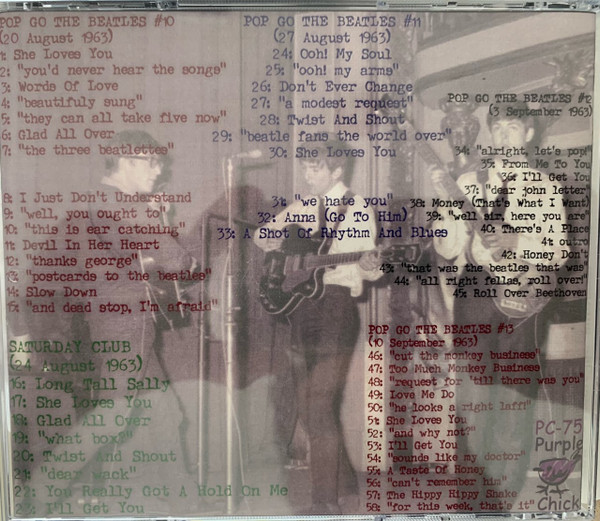 POP GO THE BEATLES #10
(20 August 1963)
1: She Loves You
2: "you'd never hear the songs"
3: Words Of Love
4: "beautifuly sung"
5: "they can all take five now"
6: Glad All Over
7: "the three beatlettes"
8: I Just Don't Understand
9: "well, you ought to"
10: "this is ear catching"
11: Devil In Her Heart
12: "thanks george"
13: "postcards to the beatles"
14: Slow Down
15: "and dead stop, I'm afraid"
SATURDAY CLUB
(24 August 1963)
16: Long Tall Sally
17: She Loves You
18: Glad All Over
19: "what box?"
20: Twist And Shout
21: "dear wack"
22: You Really Got A Hold On Me
23: I'll Get You
POP GO THE BEATLES #11
(27 August 1963)
24: Ooh! My Soul
25: "ooh! my arms"
26: Don't Ever Change
27: "a modest request"
28: Twist And Shout
29: "beatle fans the world over"
30: She Loves You
31: "we hate you"
32: Anna (Go To Him)
33: A Shot Of Rhythm And Blues
POP GO THE BEATLES #12
(3 September 1963)
34: "alright, let's pop!"
35: From Me To You
36: I'll Get You
37: "dear john letter"
38: Money (That's What I Want)
39: "well sir, here you are"
40: There's A Place
41: outro
42: Honey Don't
43: "that was the beatles that was"
44: "all right fellas, roll over!"
45: Roll Over Beethoven
POP GO THE BEATLES #13
(10 September 1963)
46: "cut the monkey business"
47: Too Much Monkey Business
48: "request for 'till there was you"
49: Love Me Do
50: "he looks a right laff!"
51: She Loves You
52: "and why not?"
53: I'll Get You
54: "sounds like my doctor"
55: A Taste Of Honey
56: "can't remember him"
57: The Hippy Hippy Shake
58: "for this week, that's it"
PC-75
Purple
Chick